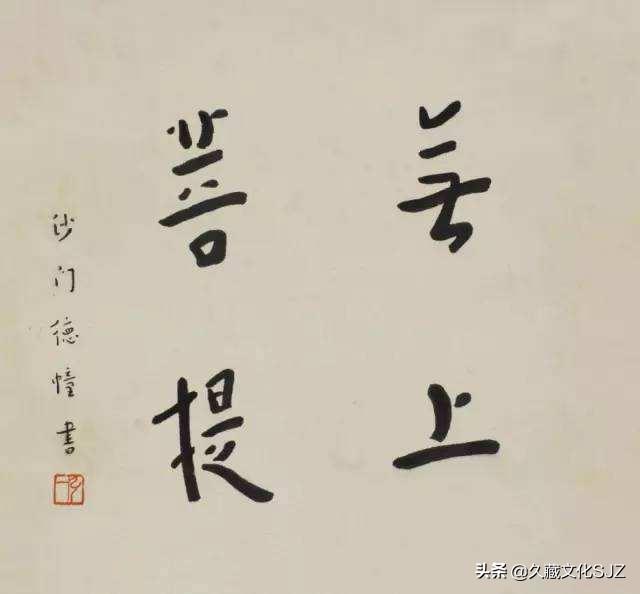 無上
菩提
沙门德幢書
头条 @久藏文化SJZ